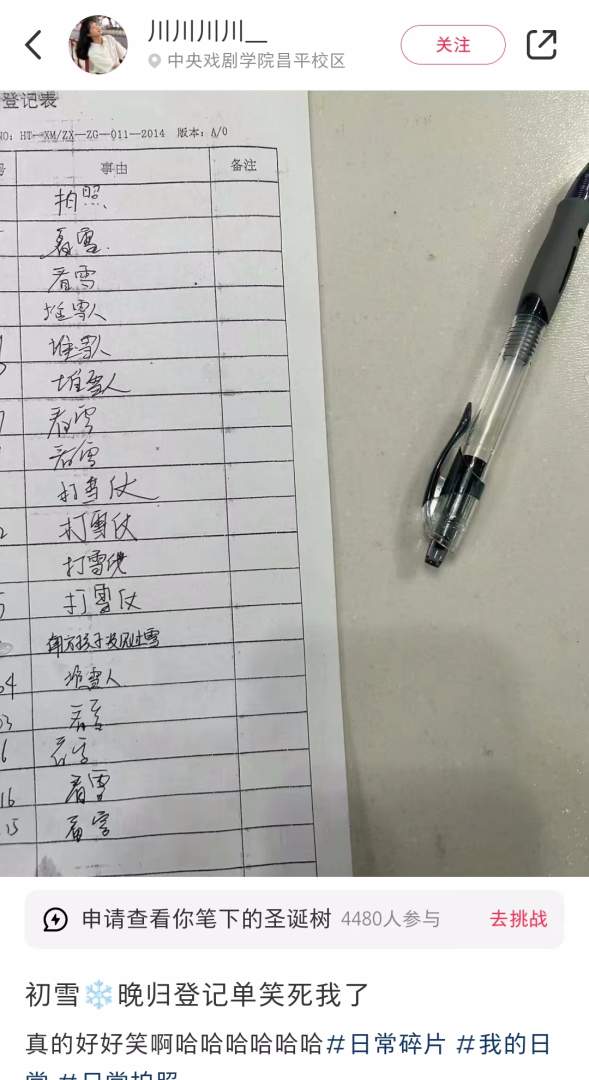 川川川川__
中央戏剧学院昌平校区
关注
登记表
NO: HT—XM/ZX—ZG—011—2014 版本: A/0
号 事由 备注
拍照
看雪
看雪
堆雪人
堆雪人
堆雪人
看雪
看雪
打雪仗
打雪仗
打雪仗
打雪仗
南方孩子没见过雪
堆雪人
看雪
看雪
看雪
看雪
申请查看你笔下的圣诞树 4480人参与 去挑战
初雪❄️晚归登记单笑死我了
真的好好笑啊哈哈哈哈哈哈#日常碎片 #我的日
常 #日常拍照